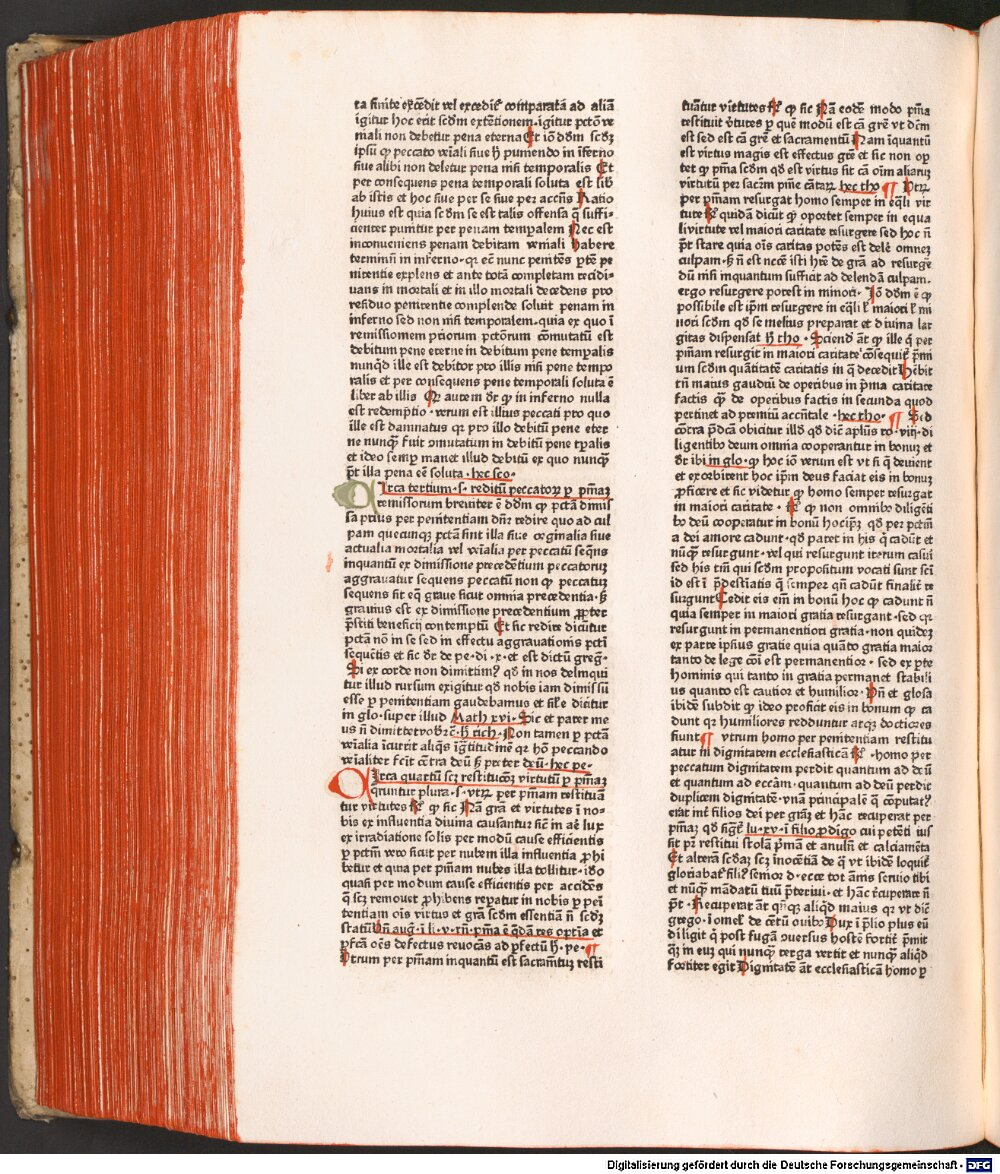 ta finite excedit vel excedit᷑ comparatā ad aliā
igitur hoc erit scd̄m extētionem. igitur pctō ve
niali non debetur pena eterna Et iō dd̄m scd̄ꝫ
ipsū ꝙ peccato veīali siue ħ pumendo in īferno
siue alibi non deletur pena nisi temporalis Et
per consequens pena temporali soluta est lib̄
ab istis et hoc siue per se siue per accn̄s Ratio
huius est quia scd̄m se est talis offensa q̄ suffi-
cienter punitur per penam tempalem Nec est
inconueniens penam debitam veniali habere
terminū in inferno. qꝛ eē nunc penitēs pꝉte pe
nitentie explens et ante totā completam recidi-
uans in mortali et in illo mortali decedens pro
residuo penitentie complende soluit penam in
inferno sed non nisi temporalem. quia ex quo ī
remissionem priorum pctōrum cōmutatū est
debitum pene eterne in debitum pene tempalis
nunqȝ ille est debitor pro illis nisi pene tempo
ralis et per consequens pene temporali soluta ē
liber ab illis Qꝛ autem dr̄ ꝙ in inferno nulla
est redemptio. verum est illius peccati pro quo
ille est damnatus qꝛ pro illo debitū pene eter
ne nunqȝ fuit ꝯmutatum in debitū pene tp̄alis
et ideo semp manet illud debitū ex quo nunqȝ
pt̄ illa pena eē soluta. hec sco.
CIrca tertium .s. reditū peccatoꝝ ꝑ pn̄iaꝫ
remissorum breuiter ē dd̄m ꝙ pctā dimis
sa prius per penitentiam dn̄r redire quo ad cul
pam quecunqꝫ pctā sint illa siue originalia siue
actualia mortalia vel veīalia per peccatū seqn̄s
inquantū ex dimissione precedētium peccatoruꝫ
aggrauatur sequens peccatū non ꝙ peccatuꝫ
sequens sit eqȝ graue sicut omnia precedentia. sȝ
grauius est ex dimissione precedentium ꝓpter
pr̄stiti beneficij contemptū Et sic redire dicūtur
pctā nō in se sed in effectu aggrauationis pctī
sequētis et sic dr̄ de pe. di. x. et est dictū greg.
Si ex corde non dimittim9 qd̄ in nos delinqui
tur illud rursum exigitur qd̄ nobis iam dimissū
esse ꝑ penitentiam gaudebamus et sil̄e dicitur
in glo. super illud Math xvi. Sic et pater me
us n̄ dimittet vobꝭ rc̄. ħ rich. Non tamen ꝑ pctā
veīalia īcurrit aliqȝ īgtitudinē qꝛ hō peccando
veīaliter fcit cōtra deū sȝ preter deū. hec pe.
CIrca quartū scȝ restitucōeꝫ virtutū ꝑ pn̄iaꝫ
qruntur plura. s. vtꝝ per pn̄iam restituā
tur virtutes ꝶ ꝙ sic Nā grā et virtutes ī no-
bis ex influentia diuina causantur sicē in aē lux
ex irradiatione solis per modū cause efficientis
ꝑ pctm̄ vero sicut per nubem illa influentia ꝓhi
betur et quia per pn̄iam nubes illa tollitur. ido
quasi per modum cause efficientis per accidēs
q̄ scȝ remouet ꝓhibens repatur in nobis ꝑ pei
tentiam ois virtus et grā scd̄m essentiā n̄ scd̄ꝫ
statū Vn̄ aug. ī li. v. rn̄. pn̄ia ē qd̄am res optīa et
pfcā oēs defectus reuocās ad pfectū ħ. pe.
Vtrum per pn̄iam inquantū est sacramētuꝫ resti
tuātur virtutes ꝶ ꝙ sic Nā eodē modo pn̄ia
restituit ꝟtutes ꝑ quē modū est cā gr̄e vt dc̄m
est sed est cā gr̄e et sacramentū Nam īquantū
est virtus magis est effectus gr̄e et sic non op
tet ꝙ pn̄ia scd̄m qd̄ est virtus sit cā oīm aliaruꝫ
virtutū per sacm̄ pnīe cātarꝫ hec tho ¶ Vtꝝ
per pn̄iam resurgat homo semper in eqȷli vir
tute ꝶ quidā dicūt ꝙ oportet semper in equa
li virtute vel maiori caritate resurgere sed hoc n̄
pt̄ stare quia oīs caritas potēs est delē omneꝫ
culpam. sȝ n̄ est nccē istī hr̄e de grā ad resurgē
dū nisi inquantum sufficit ad delendā culpam.
ergo resurgere potest in minori. Iō dd̄m ē ꝙ
possibile est ip̄m resurgere in eqȷli ł maiori ł mi
nori scd̄m qd̄ se melius preparat et diuina lar
gitas dispensat ħ tho. Sciend̄ āt ꝙ ille q̄ per
pn̄iam resurgit in maiori caritate ꝯsequit᷑ pmi
um scd̄m quātitatē caritatis in q̄ decedit Hēbit
tn̄ maius gaudiū de operibus in pma caritate
factis qȝ de operibus factis in secunda quod
pertinet ad premiū accn̄tale. hec tho. ¶ Sed
cōtra pdcā obicitur illd̄ qd̄ dic̄ apl̄us ro. viij. di
ligentibꝰ deum omnia cooperantur in bonuꝫ et
dr̄ ibi in glo. ꝙ hoc iō verum est vt si q̄ deuient
et exorbitent hoc ip̄m deus faciat eis in bonuꝫ
ꝓficere et sic videtur ꝙ homo semper resurgat
in maiori caritate. ꝶ ꝙ non omnibꝰ diligēti
bꝰ deū cooperatur in bonū hoc ip̄ꝫ qd̄ per pctm̄
a dei amore cadunt. qd̄ patet in his q̄ cadūt et
nūqȝ resurgunt. vel qui resurgunt iterum casuī
sed his tm̄ qui scd̄m propositum vocati sunt scī
id est ī pdestiatis q̄ semper qn̄ cadūt finalit᷑ re
surgunt Cedit eis em̄ in bonū hoc ꝙ cadunt n̄
quia semper in maiori gratia resurgant. sed qꝛ
resurgunt in permanentiori gratia. non quideꝫ
ex parte ipsius gratie quia quāto gratia maior
tanto de lege cōi est permanentior. sed ex pꝉte
hominis qui tanto in gratia permanet stabili
us quanto est cautior et humilior. Vn̄ et glosa
ibidē subdit ꝙ ideo proficit eis in bonum ꝙ ca
dunt qꝛ humiliores redduntur atqꝫ doctiores
fiunt ¶ vtrum homo per penitentiam restitu
atur in dignitatem ecclesiasticā ꝶ. homo per
peccatum dignitatem perdit quantum ad deū
et quantum ad eccām. quantum ad deū perdit
duplicem dignitatē. vnā principalē q̄ cōputat9
erat int̄ filios dei per graȝ et hāc recuperat per
pn̄iaꝫ qd̄ sigt᷑ lu. xv. ī filio prodigo cui petēti ius
sit pr̄ restitui stolā pmā et anulū et calciamēta
Et alterā scd̄aꝫ scȝ inocētiā de q̄ vt ibidē loquit᷑
gloriabat᷑ fili9 senior d. ecce tot āmis seruio tibi
et nūqȝ mādatū tuū pterīui. et hāc rēcuperare n̄
pt̄. Recuperat āt qn̄qꝫ aliqd̄ maius qꝛ vt dic̄
grego. ī omel̄ de cētū ouibꝰ Dux ī plio plus eū
diligit q̄ post fugā ꝯuersus hostē fortit᷑ pmit
qȝ in euꝫ qui nunqȝ terga vertit et nunqȝ aliqd̄
fortiter egit Dignitatē āt ecclesiasticā homo ꝑ
Digitalisierung gefördert durch die Deutsche Forschungsgemeinschaft - DFG